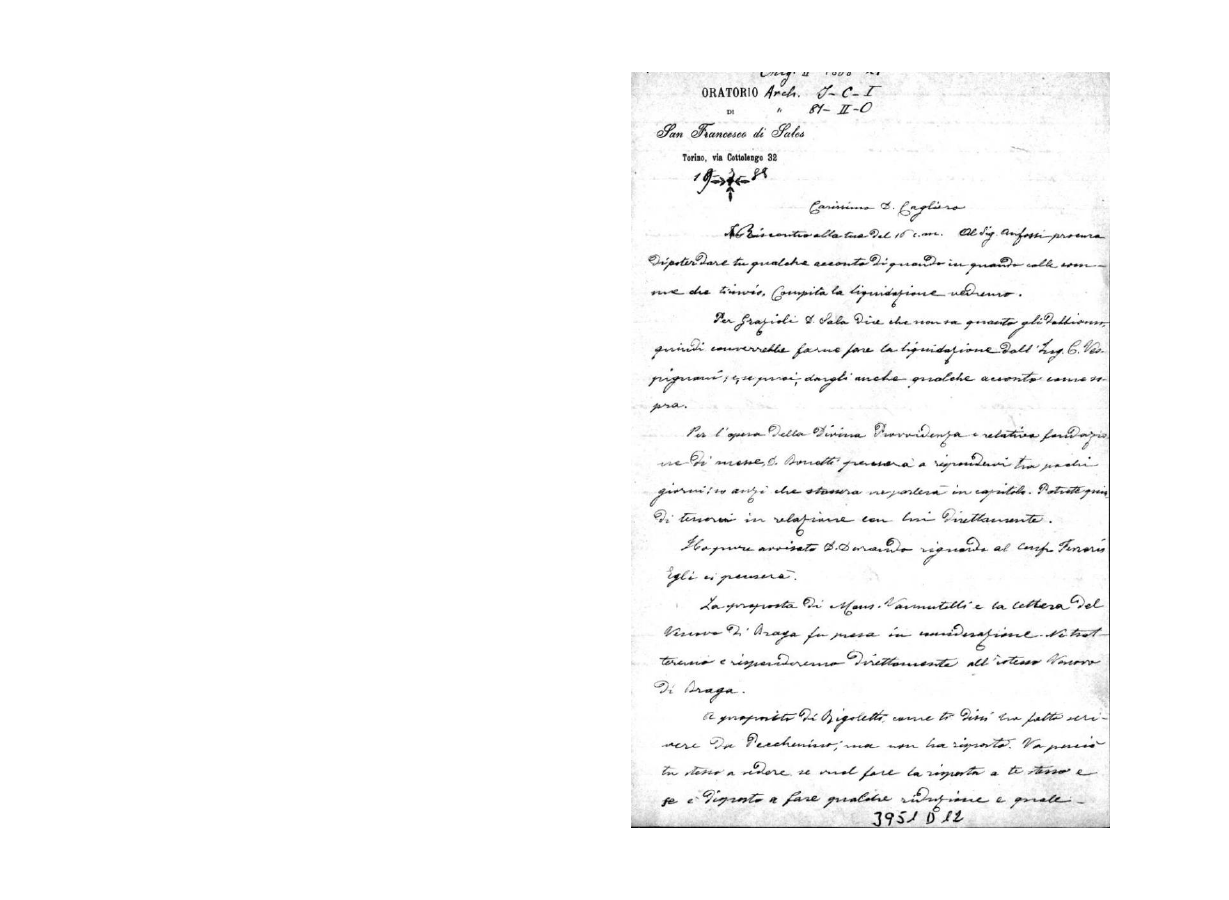 Orig. II
ORATORIO Arch. J-C-I
DI " 81-II-O
San Francesco di Sales
Torino, via Cottolengo 32
19 88
Carissimo D. Cagliero
Riscontro alla tua del 16 c.m. Al Sig. Anfossi procura
di poter dare tu qualche acconto di quando in quando colle som-
me che trovi. Compita la liquidazione vedremo.
Per Grazioli D. Sala dice che non sa quanto gli dobbiamo,
quindi converrebbe farne fare la liquidazione dall'Ing. C. Ves-
pignani; e, se puoi, dargli anche qualche acconto come so
pra.
Per l'opera della Divina Provvidenza e relativa fondazio
ne di messe, D. Bonetti penserà a rispondervi tra pochi
giorni; so anzi che stasera ne porterà in capitolo. Potrete quin
di tenervi in relazione con lui direttamente.
Ho pure avvisato D. Durando riguardo al Conf. Ferraris
Egli ci penserà.
La proposta di Mons. Vannutelli e la lettera del
Vescovo di Braga fu presa in considerazione. Ne trat-
teremo e risponderemo direttamente all'istesso Vescovo
di Braga.
A proposito di Rigoletti, come ti dissi ho fatto scri-
vere da Pecchenino; ma non ha risposto. Va perciò
tu stesso a vedere se vuol fare la risposta a te stesso e
se è disposto a fare qualche riduzione e quale -
3951 D 12